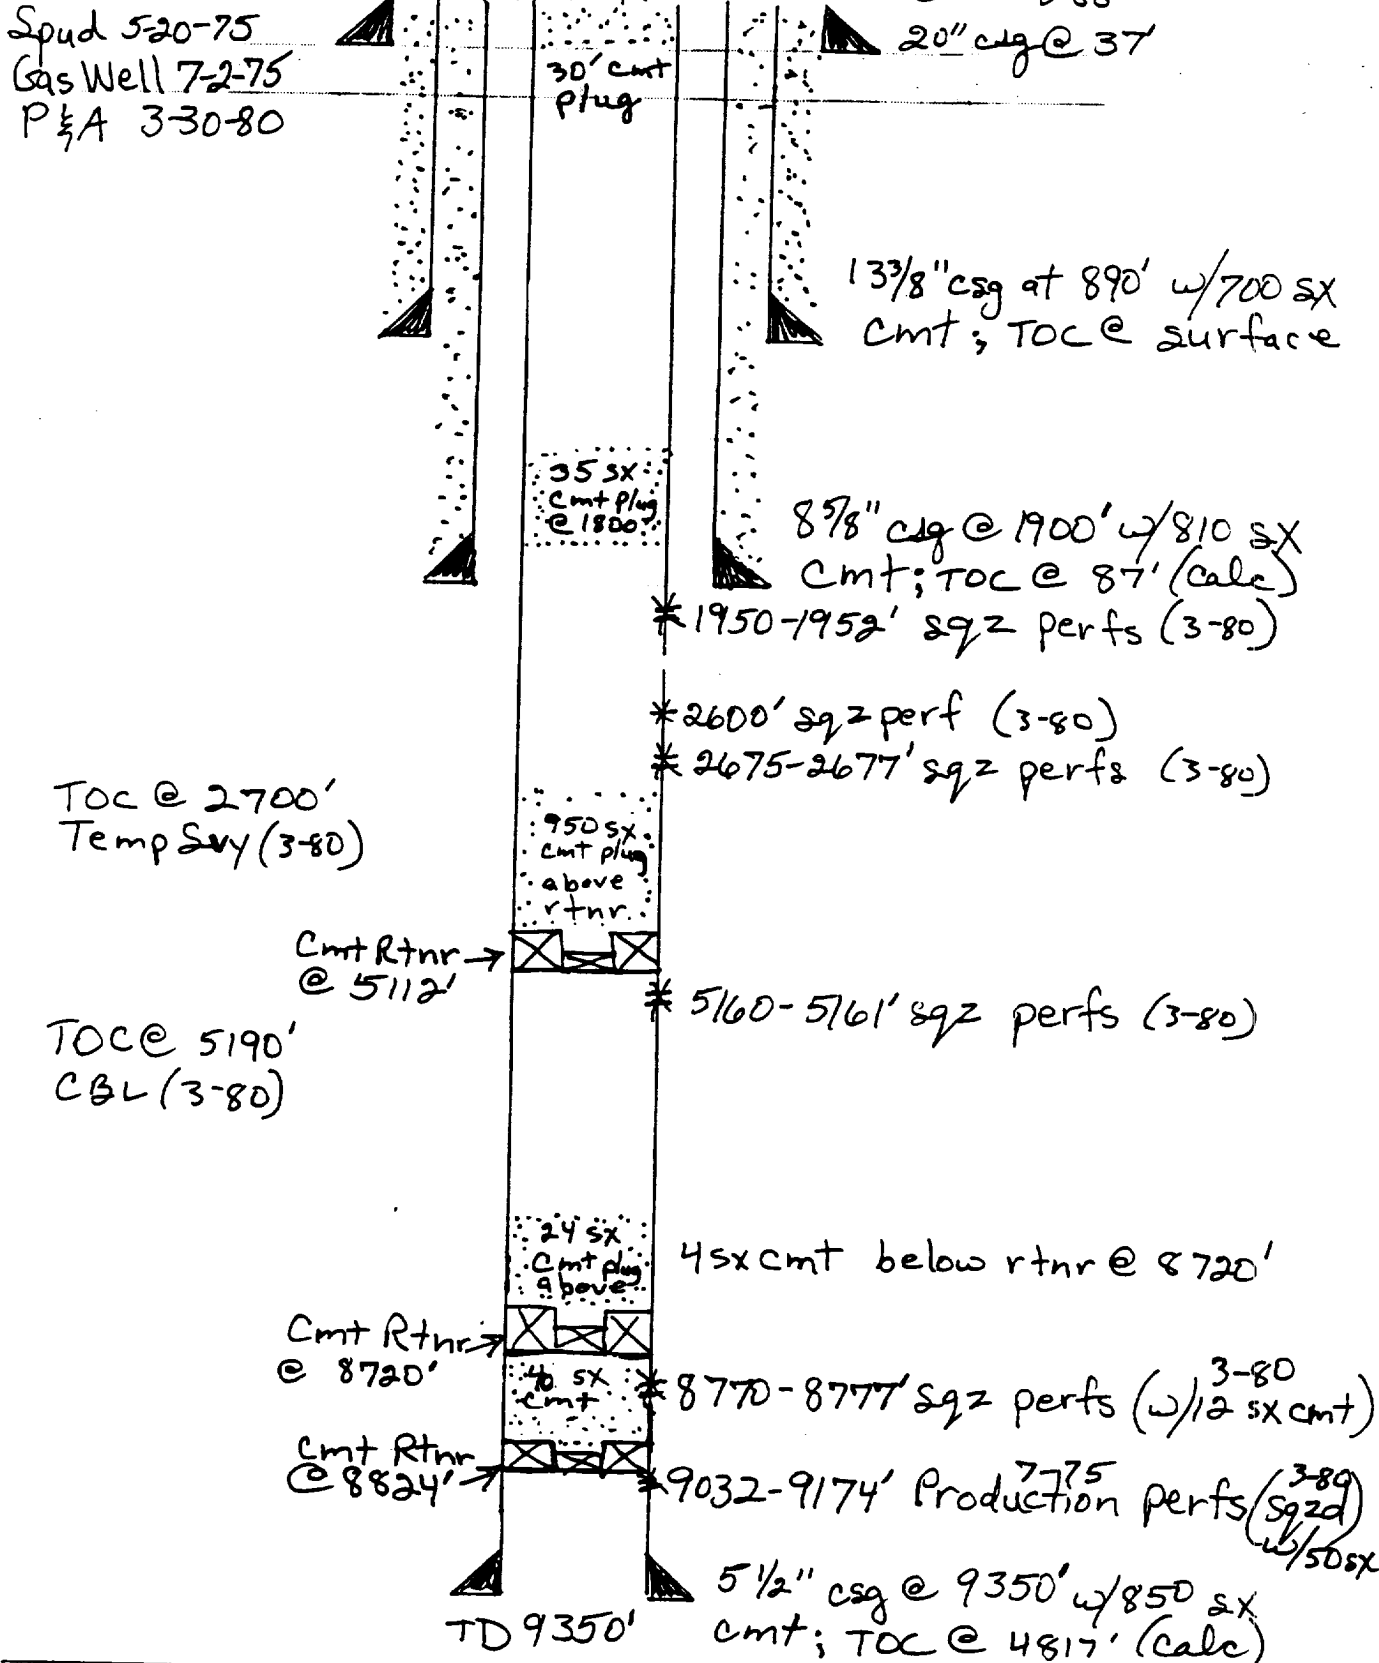 Spud 5-20-75
Gas Well 7-2-75
P&A 3-30-80
20" csg @ 37'
30' cmt
plug
13 3/8" csg at 890' w/700 sx
Cmt; TOC @ surface
35 sx
Cmt Plug
@ 1800'
8 5/8" csg @ 1900' w/810 sx
Cmt; TOC @ 87' (Calc)
1950-1952' sqz perfs (3-80)
2600' sqz perf (3-80)
2675-2677' sqz perfs (3-80)
TOC @ 2700'
Temp Svy (3-80)
950 sx
cmt plug
above
rtnr
Cmt Rtnr
@ 5112'
5160-5161' sqz perfs (3-80)
TOC @ 5190'
CBL (3-80)
24 sx
Cmt plug
above
4 sx cmt below rtnr @ 8720'
Cmt Rtnr
@ 8720'
sx
cmt
8770-8777' sqz perfs (w/12 sx cmt)
3-80
Cmt Rtnr
@ 8824'
9032-9174' Production perfs (sqzd
7-75
3-80
w/50 sx
5 1/2" csg @ 9350' w/850 sx
cmt; TOC @ 4817' (Calc)
TD 9350'